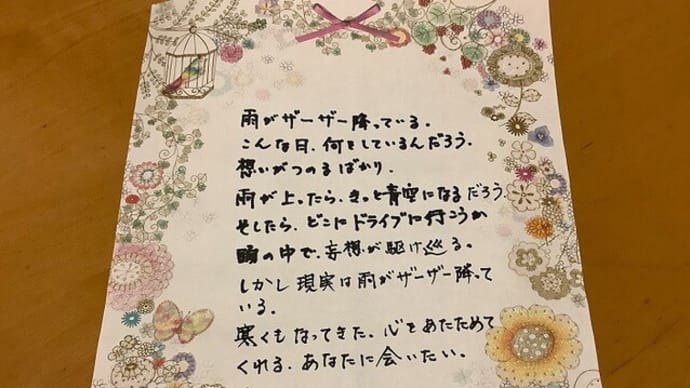 雨がザーザー降っている.
こんな日.何をしているんだろう.
想いがつのるばかり.
雨が上ったら.きっと青空になるだろう.
そしたら、どこにドライブに行こうか
胸の中で、妄想が駆け巡る。
しかし現実は雨がザーザー降って
いる.
寒くもなってきた、心をあたためて
くれる.あなたに会いたい。